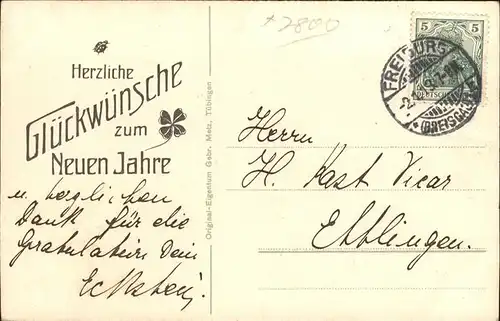 Herzliche
Glückwünsche
zum
Neuen Jahre
u. herzlichen
Dank für die
Gratulation Dein
Eckstein!
Original-Eigentum Gebr. Metz, Tübingen
* 2800
5 5
FREIBURG
(BREISGAU)
Herrn
H. Kast Vicar
Ettlingen.